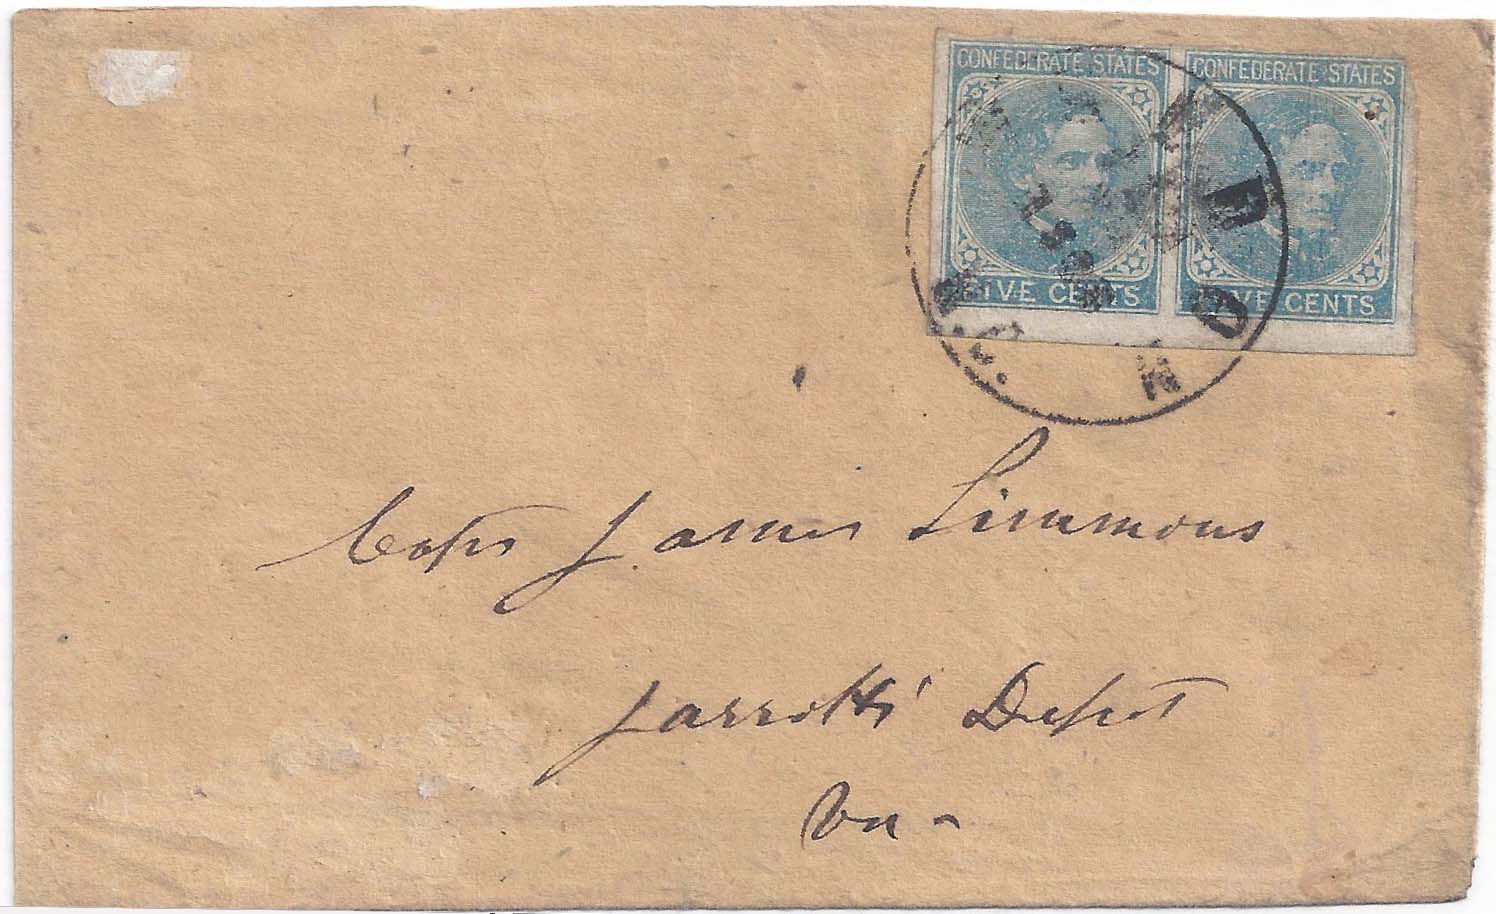 CONFEDERATE STATES CONFEDERATE STATES
FIVE CENTS FIVE CENTS
WELDON N.C.
Capt James Simmons
Jarrotts' Depot
Va -